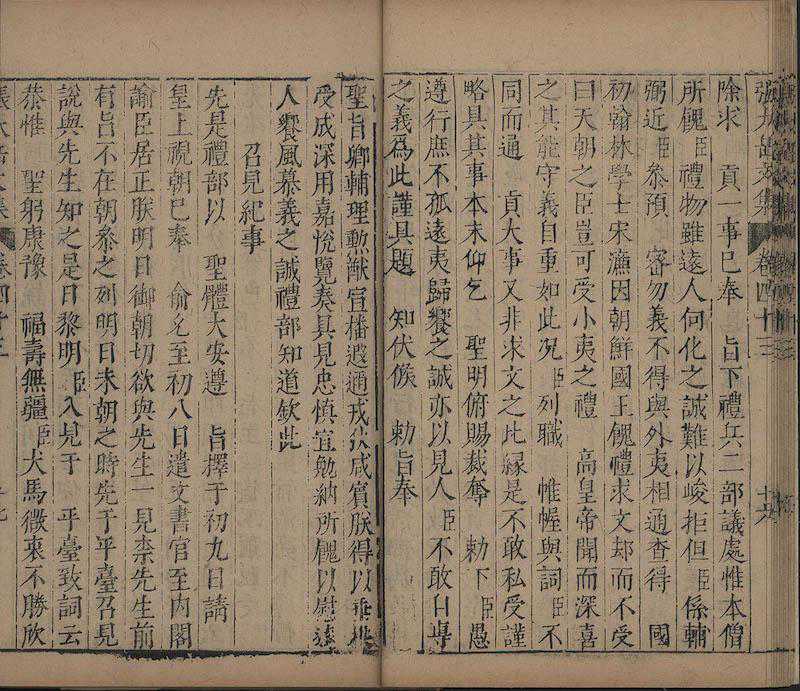 張太岳文集 卷四十三 十六
除求 貢一事已奉 旨下禮兵二部議處惟本僧
所餽 臣禮物雖遠人向化之誠難以峻拒但 臣係輔
弼近 臣參預 密勿義不得與外夷相通查得 國
初翰林學士宋濂因朝鮮國王餽禮求文却而不受
曰天朝之臣豈可受小夷之禮 高皇帝聞而深喜
之其能守義自重如此況 臣列職 帷幄與詞 臣不
同而通 貢大事又非求文之比緣是不敢私受謹
略具其事本末仰乞 聖明俯賜裁奪 勅下 臣愚
遵行庶不孤遠夷歸嚮之誠亦以見人 臣不敢自專
之義為此謹具題 知伏候 勅旨奉
聖旨卿輔理勲猷宣播遐通戎狄咸賓朕得以垂拱
受成深用嘉悅覽奏具見忠慎宜勉納所餽以慰遠
人嚮風慕義之誠禮部知道欽此
召見紀事
先是禮部以 聖體大安遵 旨擇于初九日請
皇上視朝已奉 俞允至初八日遣文書官至内閣
諭臣居正朕明日御朝切欲與先生一見柰先生前
有旨不在朝叅之列明日未朝之時先于平臺召見
説與先生知之是日黎明 臣入見于 平臺致詞云
恭惟 聖躬康豫 福壽無疆 臣犬馬微衷不勝欣
張太岳文集 卷四十三